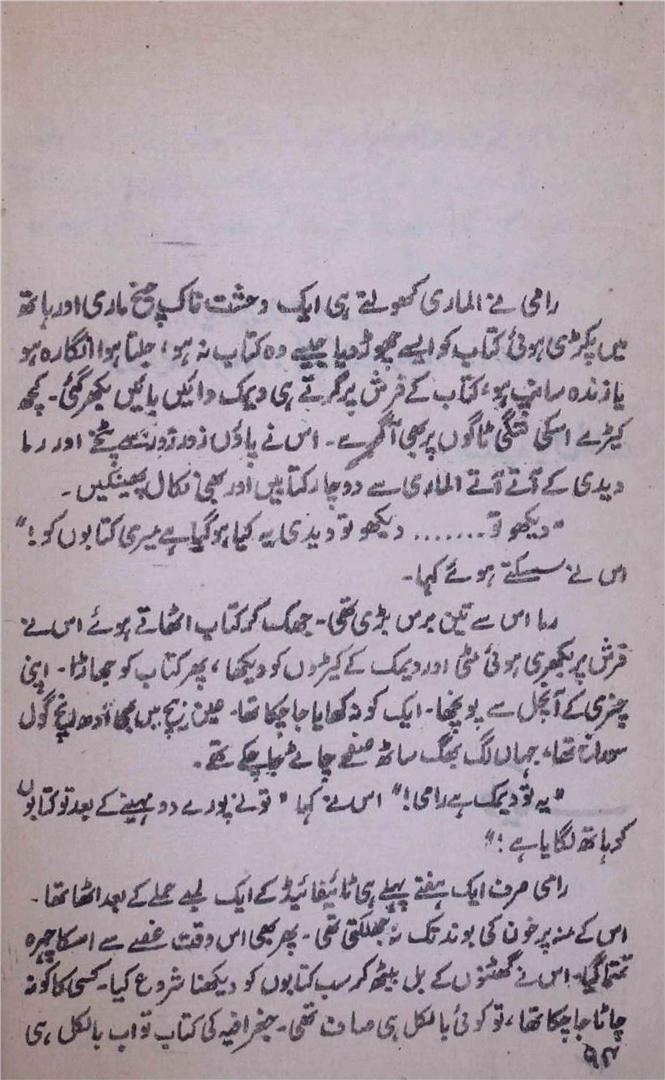 رامی نے الماری کھولتے ہی ایک وحشت ناک چیخ ماری اور ہاتھ
میں پکڑی ہوئی کتاب کو ایسے چھوڑ دیا جیسے وہ کتاب نہ ہو، جلتا ہوا انگارہ ہو
یا زندہ سانپ ہو، کتاب کے فرش پر گرتے ہی دیمک دائیں بائیں بکھر گئی۔ کچھ
کیڑے اسکی ننگی ٹانگوں پر بھی آ گرے۔ اس نے پاؤں زور زور سے پٹخے اور رما
دیدی کے آتے آتے الماری سے دو چار کتابیں اور بھی نکال پھینکیں۔
"دیکھو تو....... دیکھو تو دیدی یہ کیا ہو گیا ہے میری کتابوں کو!"
اس نے سسکتے ہوئے کہا۔
رما اس سے تین برس بڑی تھی۔ جھک کر کتاب اٹھاتے ہوئے اس نے
فرش پر بکھری ہوئی مٹی اور دیمک کے کیڑوں کو دیکھا، پھر کتاب کو جھاڑا۔ اپنی
چنری کے آنچل سے پونچھا۔ ایک کونہ کھایا جا چکا تھا۔ عین بیچ میں بھی آدھ انچ گول
سوراخ تھا، جہاں لگ بھگ ساٹھ صفحے چاٹے جا چکے تھے۔
"یہ تو دیمک ہے رامی!" اس نے کہا "تو نے پورے دو مہینے کے بعد تو کتابوں
کو ہاتھ لگایا ہے!"
رامی صرف ایک ہفتے پہلے ہی ٹائیفائیڈ کے ایک لمبے حملے کے بعد اٹھا تھا۔
اس کے منہ پر خون کی بوند تک نہ جھلکتی تھی۔ پھر بھی اس وقت غصے سے اسکا چہرہ
تمتما گیا۔ اس نے گھٹنوں کے بل بیٹھ کر سب کتابوں کو دیکھنا شروع کیا۔ کسی کا کونہ
چاٹا جا چکا تھا، تو کوئی بالکل ہی صاف تھی۔ جغرافیہ کی کتاب تو اب بالکل ہی
۹۴